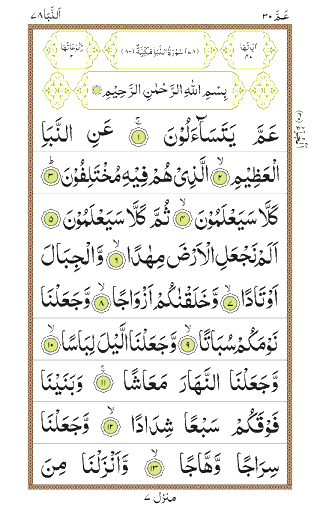 عَمَّ ٣٠ اَلنَّبَا ٧٨
اٰيَاتُهَا ٤٠ (٧٨) سُوْرَةُ النَّبَاِ مَكِّيَّةٌ (٨٠) رُكُوْعَاتُهَا ٢
بِسْمِ اللّٰهِ الرَّحْمٰنِ الرَّحِيْمِ
عَمَّ يَتَسَآءَلُوْنَ ۚ ﴿١﴾ عَنِ النَّبَاِ
الْعَظِيْمِ ۙ ﴿٢﴾ الَّذِيْ هُمْ فِيْهِ مُخْتَلِفُوْنَ ؕ ﴿٣﴾
كَلَّا سَيَعْلَمُوْنَ ۙ ﴿٤﴾ ثُمَّ كَلَّا سَيَعْلَمُوْنَ ﴿٥﴾
اَلَمْ نَجْعَلِ الْاَرْضَ مِهٰدًا ۙ ﴿٦﴾ وَّالْجِبَالَ
اَوْتَادًا ۙ ﴿٧﴾ وَّخَلَقْنٰكُمْ اَزْوَاجًا ۙ ﴿٨﴾ وَّجَعَلْنَا
نَوْمَكُمْ سُبَاتًا ۙ ﴿٩﴾ وَّجَعَلْنَا الَّيْلَ لِبَاسًا ۙ ﴿١٠﴾
وَّجَعَلْنَا النَّهَارَ مَعَاشًا ۪ ﴿١١﴾ وَبَنَيْنَا
فَوْقَكُمْ سَبْعًا شِدَادًا ۙ ﴿١٢﴾ وَّجَعَلْنَا
سِرَاجًا وَّهَّاجًا ۙ ﴿١٣﴾ وَّاَنْزَلْنَا مِنَ
منزل ٧